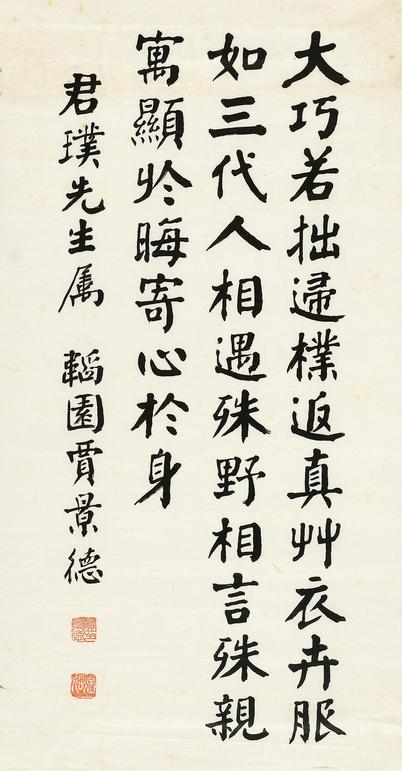 大巧若拙遝樸返真艸衣卉服
如三代人相遇殊野相言殊親
寓顯於晦寄心於身
君璞先生属　韜園賈景德